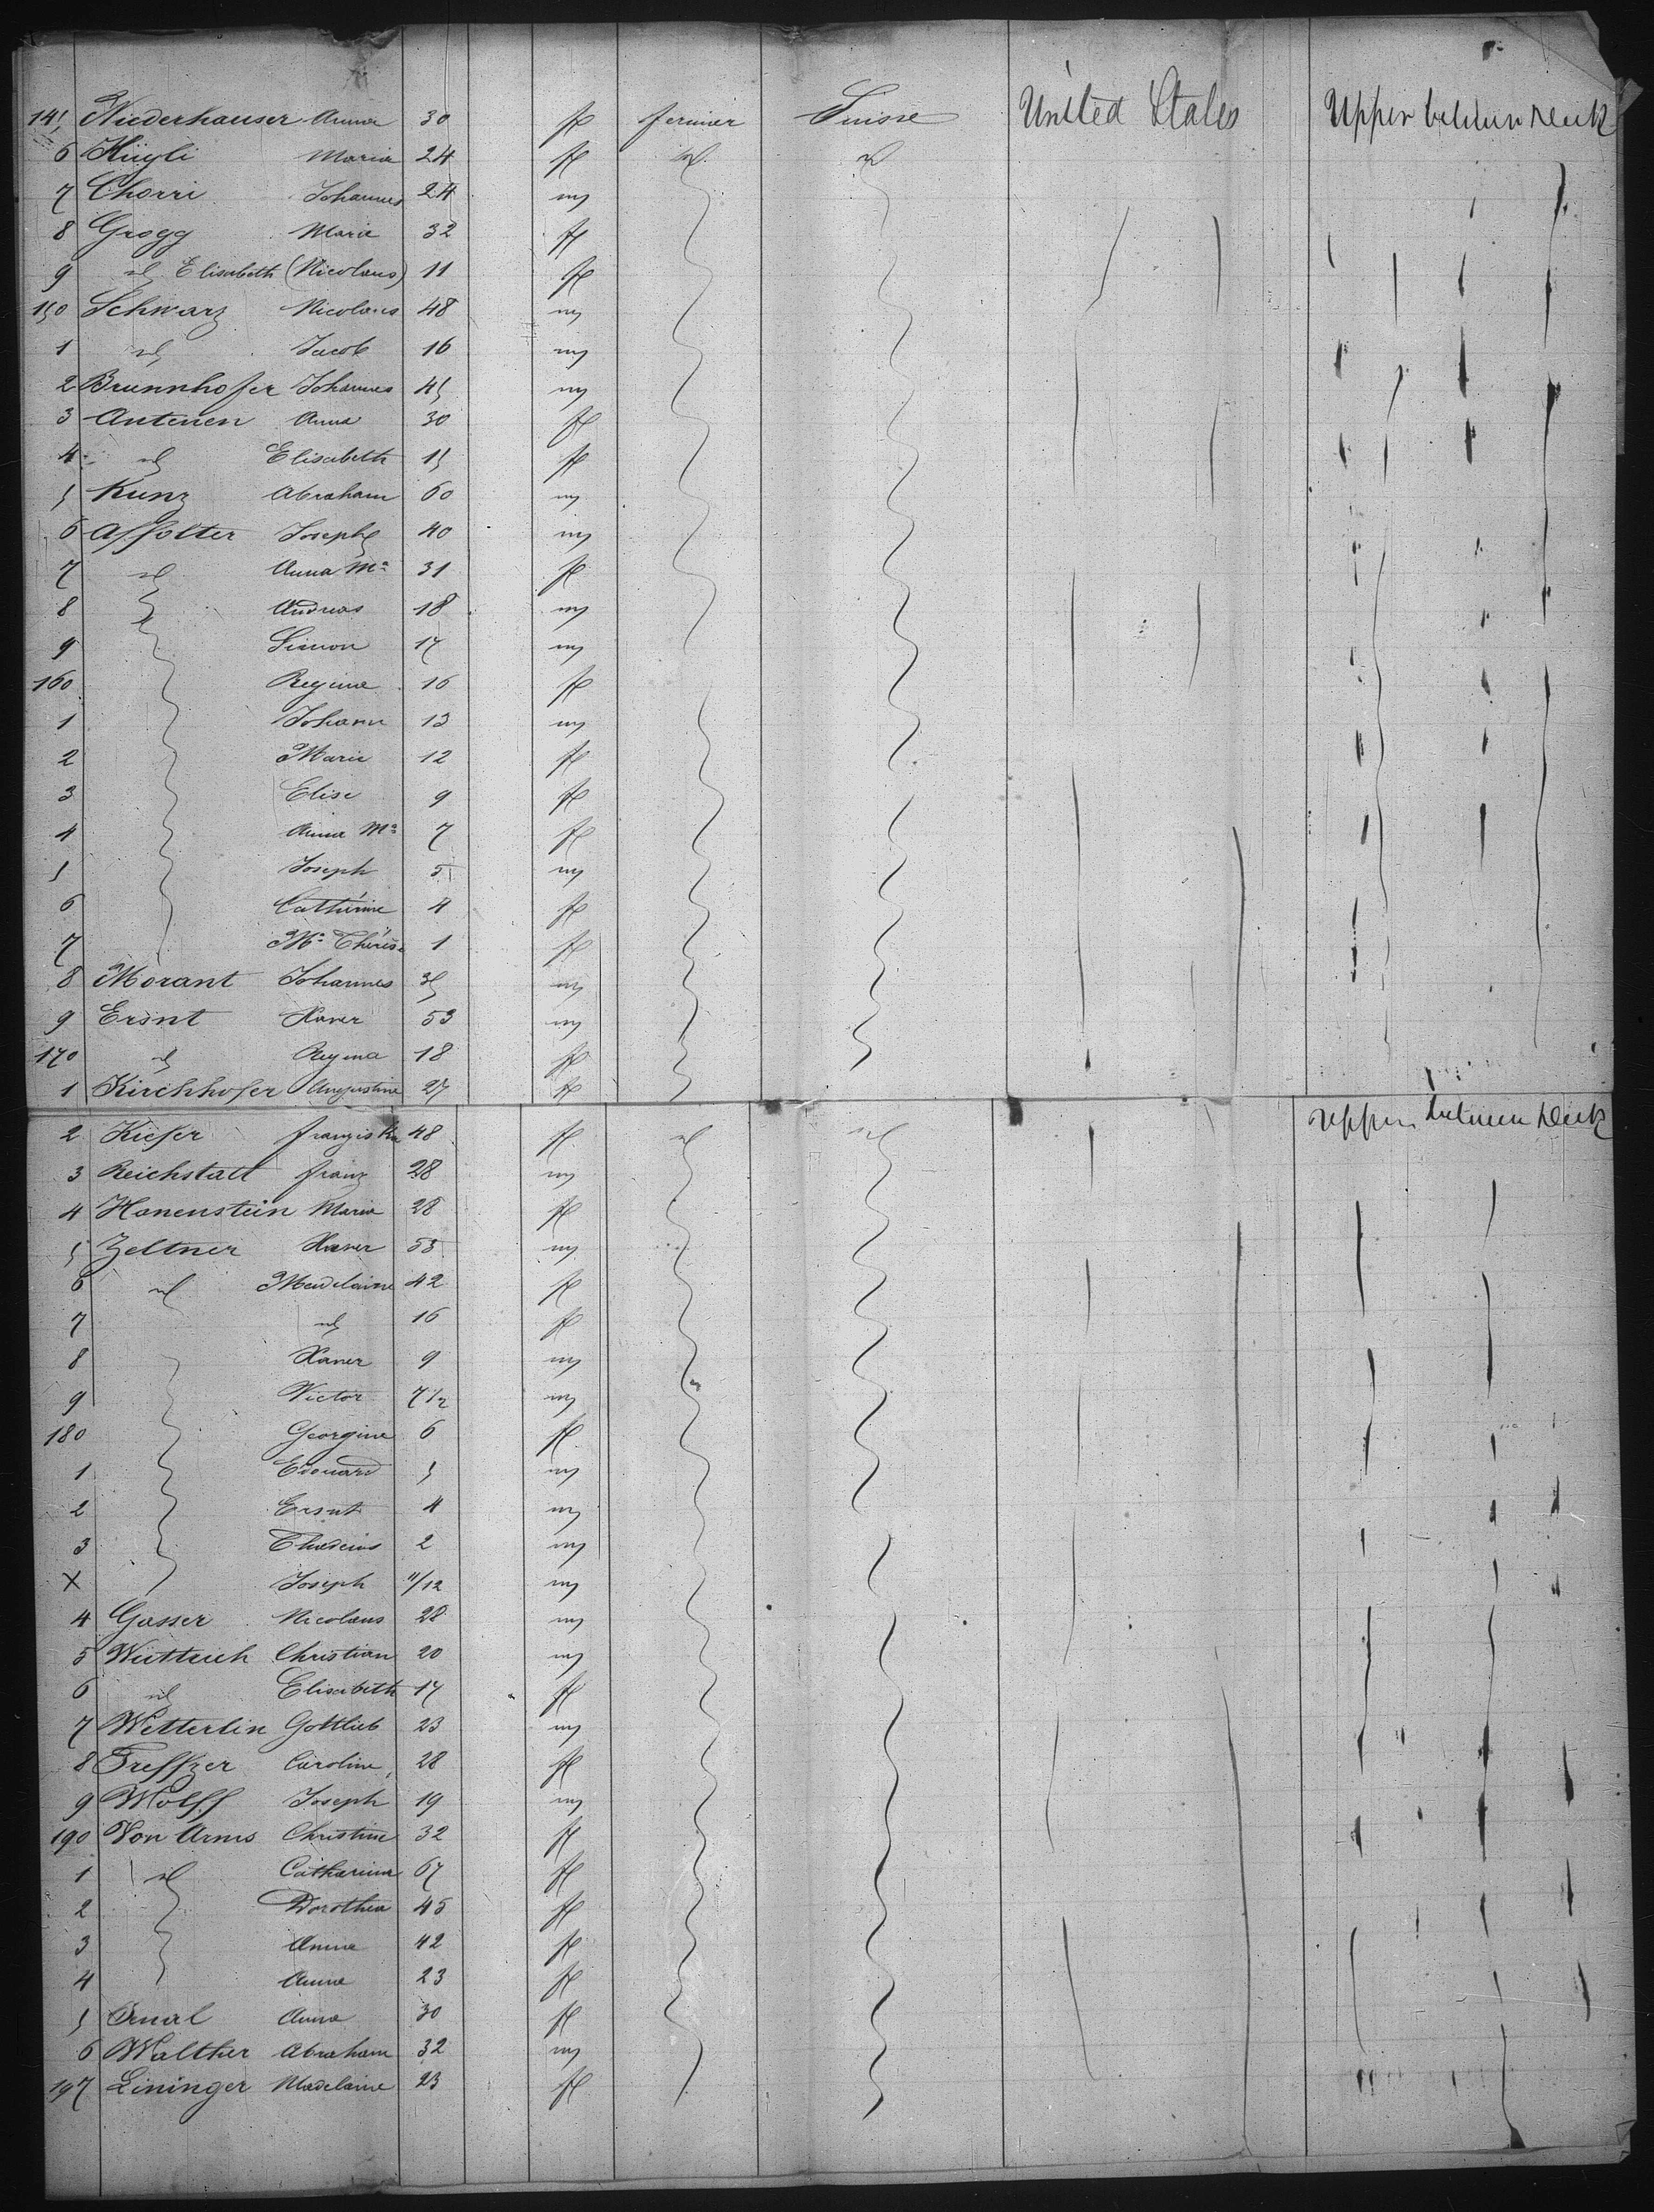 145 Niederhauser Anna 30 f fermier Suisse United States Upper between Deck
6 Hügli Maria 24 f id id
7 Chorri Johannes 24 m
8 Grogg Maria 32 f
9 id Elisabeth (Nicolaus) 11 f
150 Schwarz Nicolaus 48 m
1 id Jacob 16 m
2 Brunnhofer Johannes 45 m
3 Antenen Anna 30 f
4 id Elisabeth 15 f
5 Kunz Abraham 60 m
6 Affolter Joseph 40 m
7 id Anna Ma 31 f
8 Andreas 18 m
9 Simon 17 m
160 Regina 16 f
1 Johann 13 m
2 Marie 12 f
3 Elise 9 f
4 Anna Ma 7 f
5 Joseph 5 m
6 Cathérine 4 f
7 Ma Thérèse 1 f
8 Morant Johannes 35 m
9 Ersnt Xaver 53 m
170 id Regina 18 f
1 Kirchhofer Augustine 27 f
Upper between Deck
2 Kiefer Franziska 48 f id id
3 Reichstatt Franz 28 m
4 Hanenstein Maria 28 f
5 Zeltner Xaver 53 m
6 id Madelaine 42 f
7 id 16 f
8 Xaver 9 m
9 Victor 7 1/2 m
180 Georgine 6 f
1 Edouard 5 m
2 Ersnt 4 m
3 Thadeius 2 m
X Joseph 11/12 m
4 Gasser Nicolaus 28 m
5 Wüttrich Christian 20 m
6 id Elisabeth 17 f
7 Wetterlin Gottlieb 23 m
8 Treffzer Caroline 28 f
9 Wolff Joseph 19 m
190 Von Arms Christine 32 f
1 id Catharina 67 f
2 Dorothea 45 f
3 Anna 42 f
4 Anna 23 f
5 Anna 30 f
6 Walther Abraham 32 m
197 Lininger Madelaine 23 f